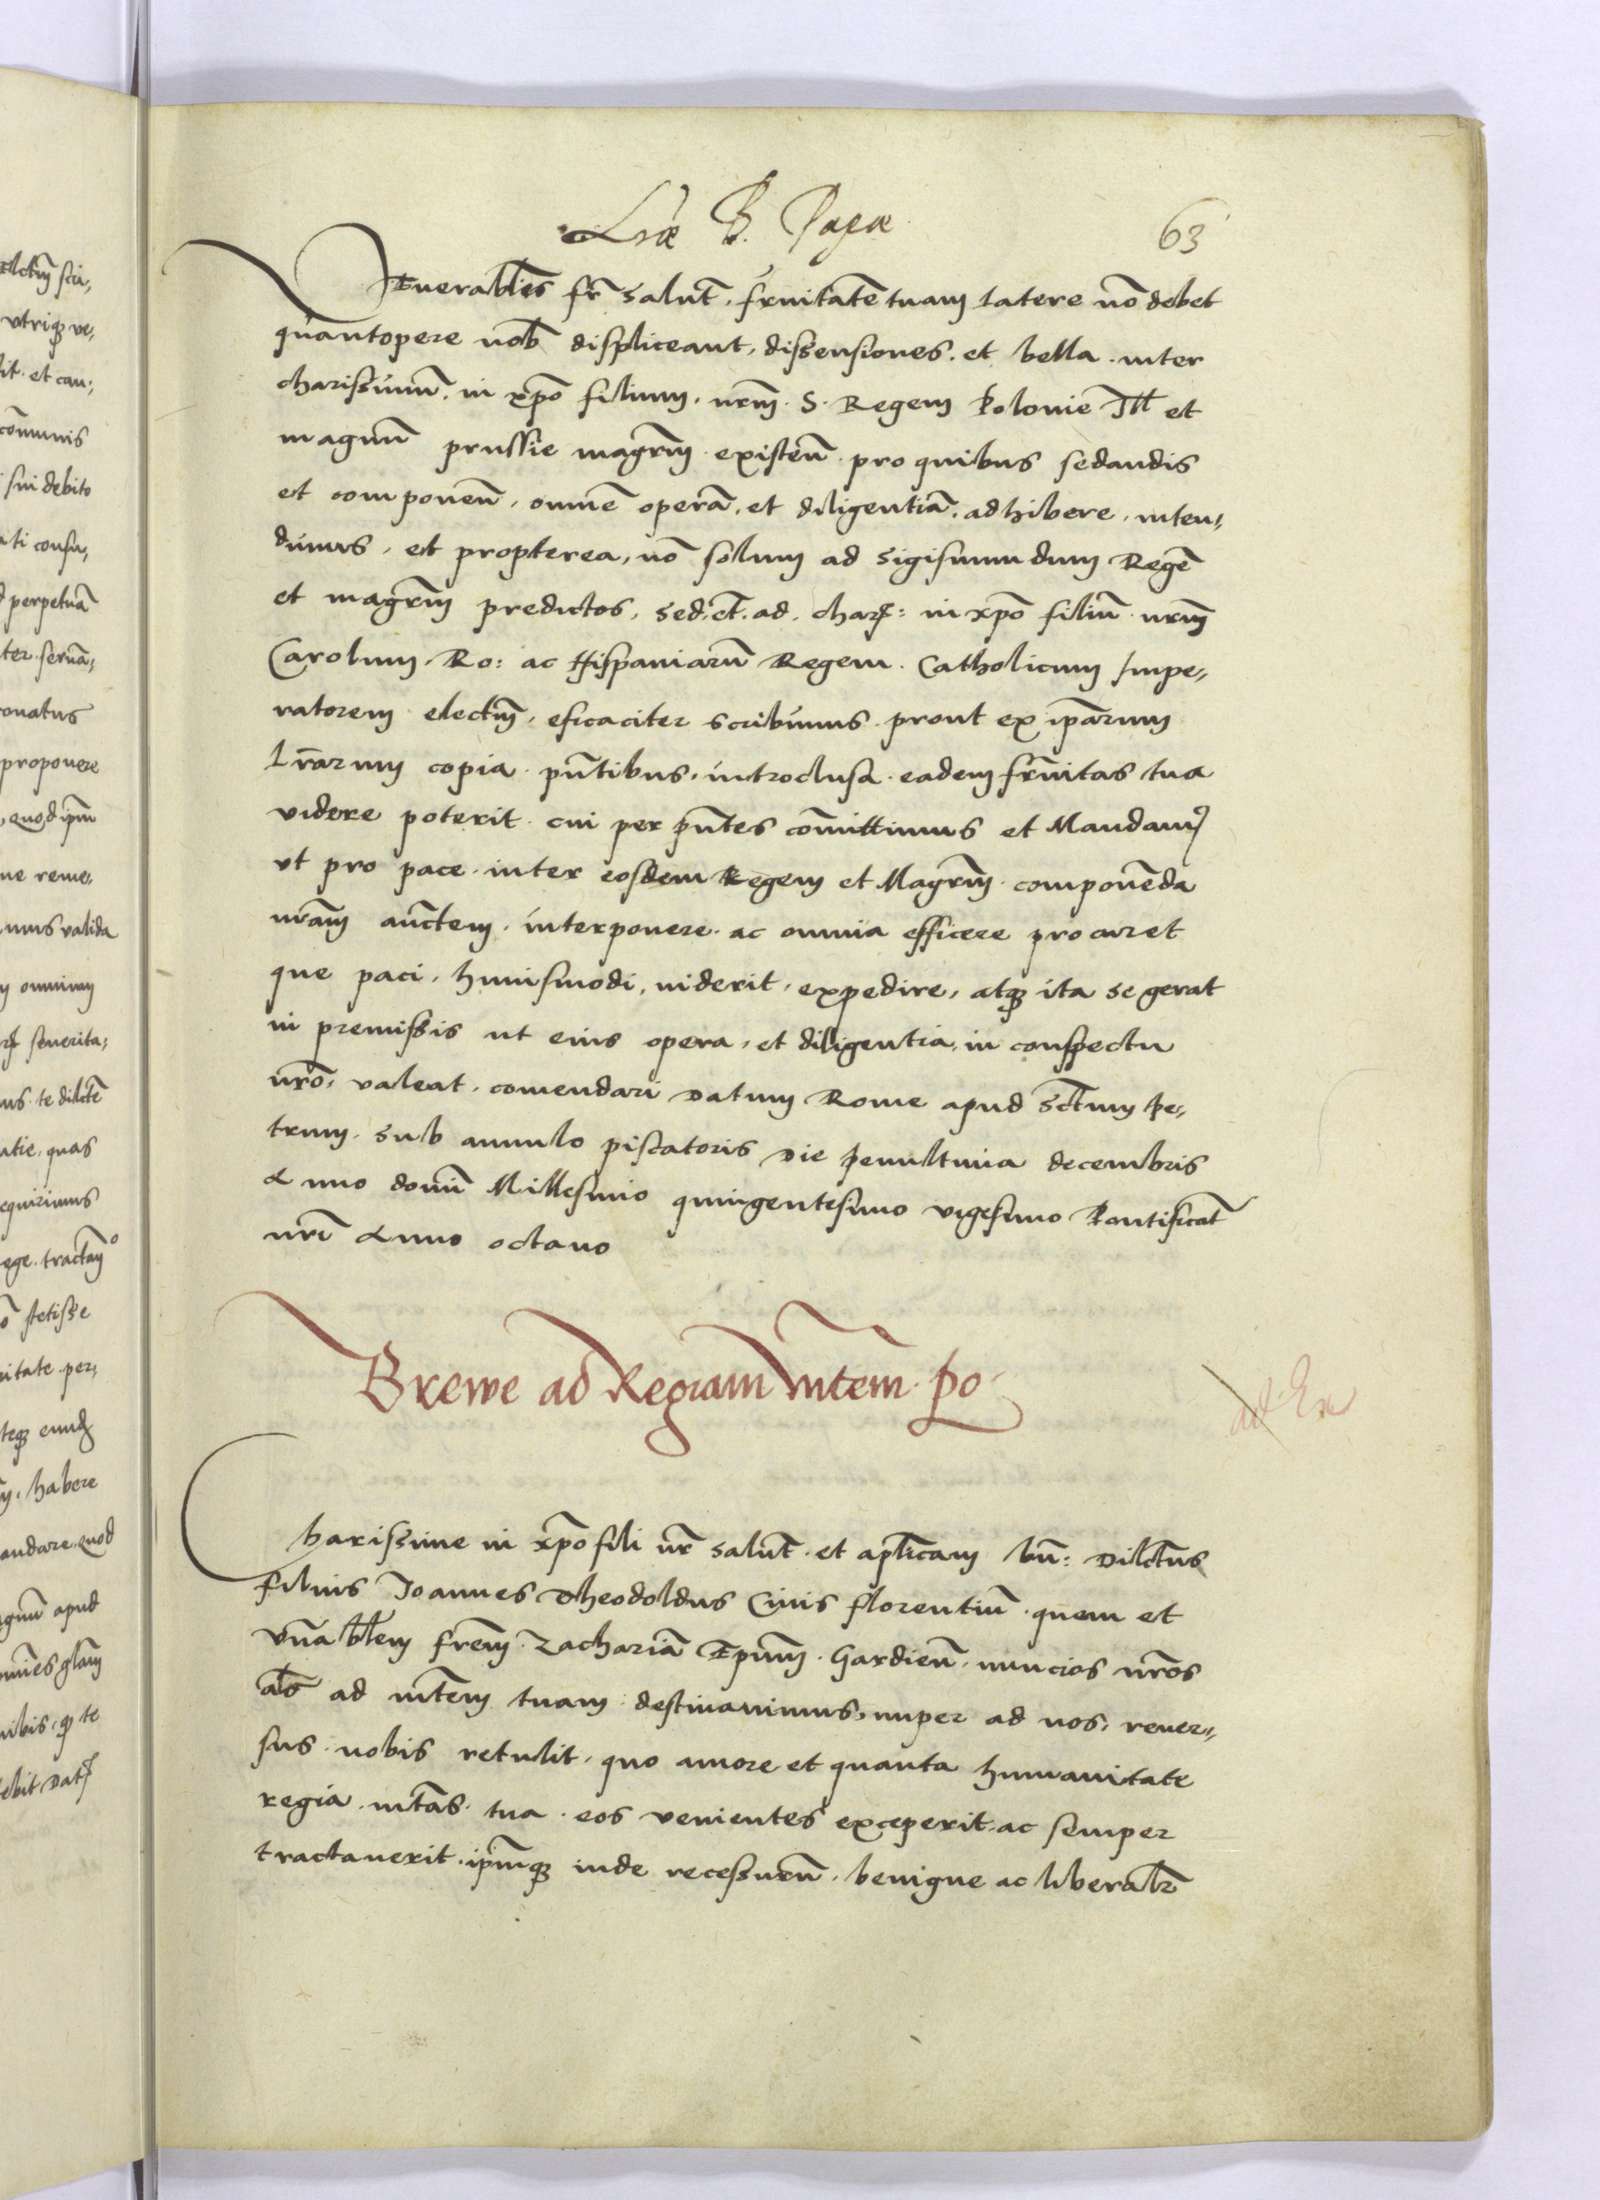 Lr̃æ B. Papæ 63
VEnerabl̃es fr̃ salut̃, fr̃nitatẽ tuam latere nõ debet
quantopere nob̃ displiceant, dissensiones. et bella. inter
charissimũ. in xp̃o filium. nr̃m. S. Regem Polonie Ill̃ et
magnũ prussie magr̃m existeñ. pro quibus sedandis
et componeñ, omnẽ operã, et diligentiã, adhibere, inten,,
dimus, et propterea, nõ solum ad Sigismundum Regẽ
et magr̃m predictos, sed. et̃. ad. char̃: in xp̃o filiũ. nr̃m
Carolum. Ro: ac Hispaniarũ Regem. Catholicum Impe,,
ratorem electũ, eficaciter scribimus. prout ex ip̃arum
Lr̃arum copia. pñtibus, introclusa. eadem fr̃nitas tua
videre poterit. cui per pñtes cõmittimus et Mandam9
ut pro pace. inter eosdem Regem et Magr̃m. componẽda
nr̃am auc̃tem. interponere. ac omnia efficere procuret
que paci, huiusmodi, uiderit, expedire, atq3 ita se gerat
in premissis ut eius opera, et diligentia, in conspectu
nr̃o, valeat, comendari Datum Rome apud Sc̃tum Pe,,
trum. Sub annulo piscatoris Die Penultima decembris
Anno domĩ Millesimo quingentesimo vigesimo Pontificat̃
nr̃i Anno octauo
Brewe ad Regiam m̃tem. Po
Charissime in xp̃o fili nr̃ salut̃. et apl̃icam bñ: Dilc̃tus
filius Joannes Theodoldus Ciuis florentiñ. quem et
vñabl̃em fr̃em. Zachariã Ep̃um. Gardieñ. nuncios nr̃os
al̃s ad m̃tem tuam destinauimus, nuper ad nos, reuer,,
sus. nobis retulit, quo amore et quanta humanitate
regia. m̃tas. tua. eos venientes exceperit, ac semper
tractauerit. ip̃mq3 inde recessurũ. benigne ac liberalr̃